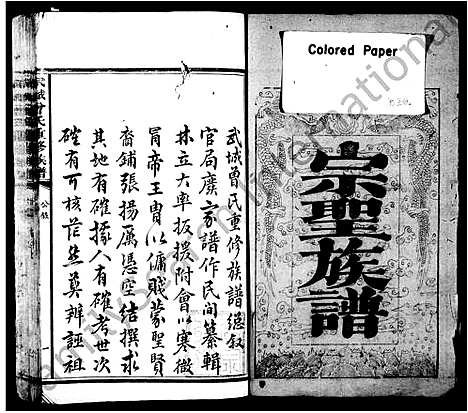 Colored Paper
宗聖族譜
武城曾氏重修族譜總敘
官局廣家譜作民間纂輯
林立大率扳援附會以寒微
冐帝王胄以傭賤蒙聖賢
裔鋪張揚厲憑空結撰求
其地有確據人有確考世次
確有可核茫然莫辨誣祖
武城曾氏重修族譜
公敘
一